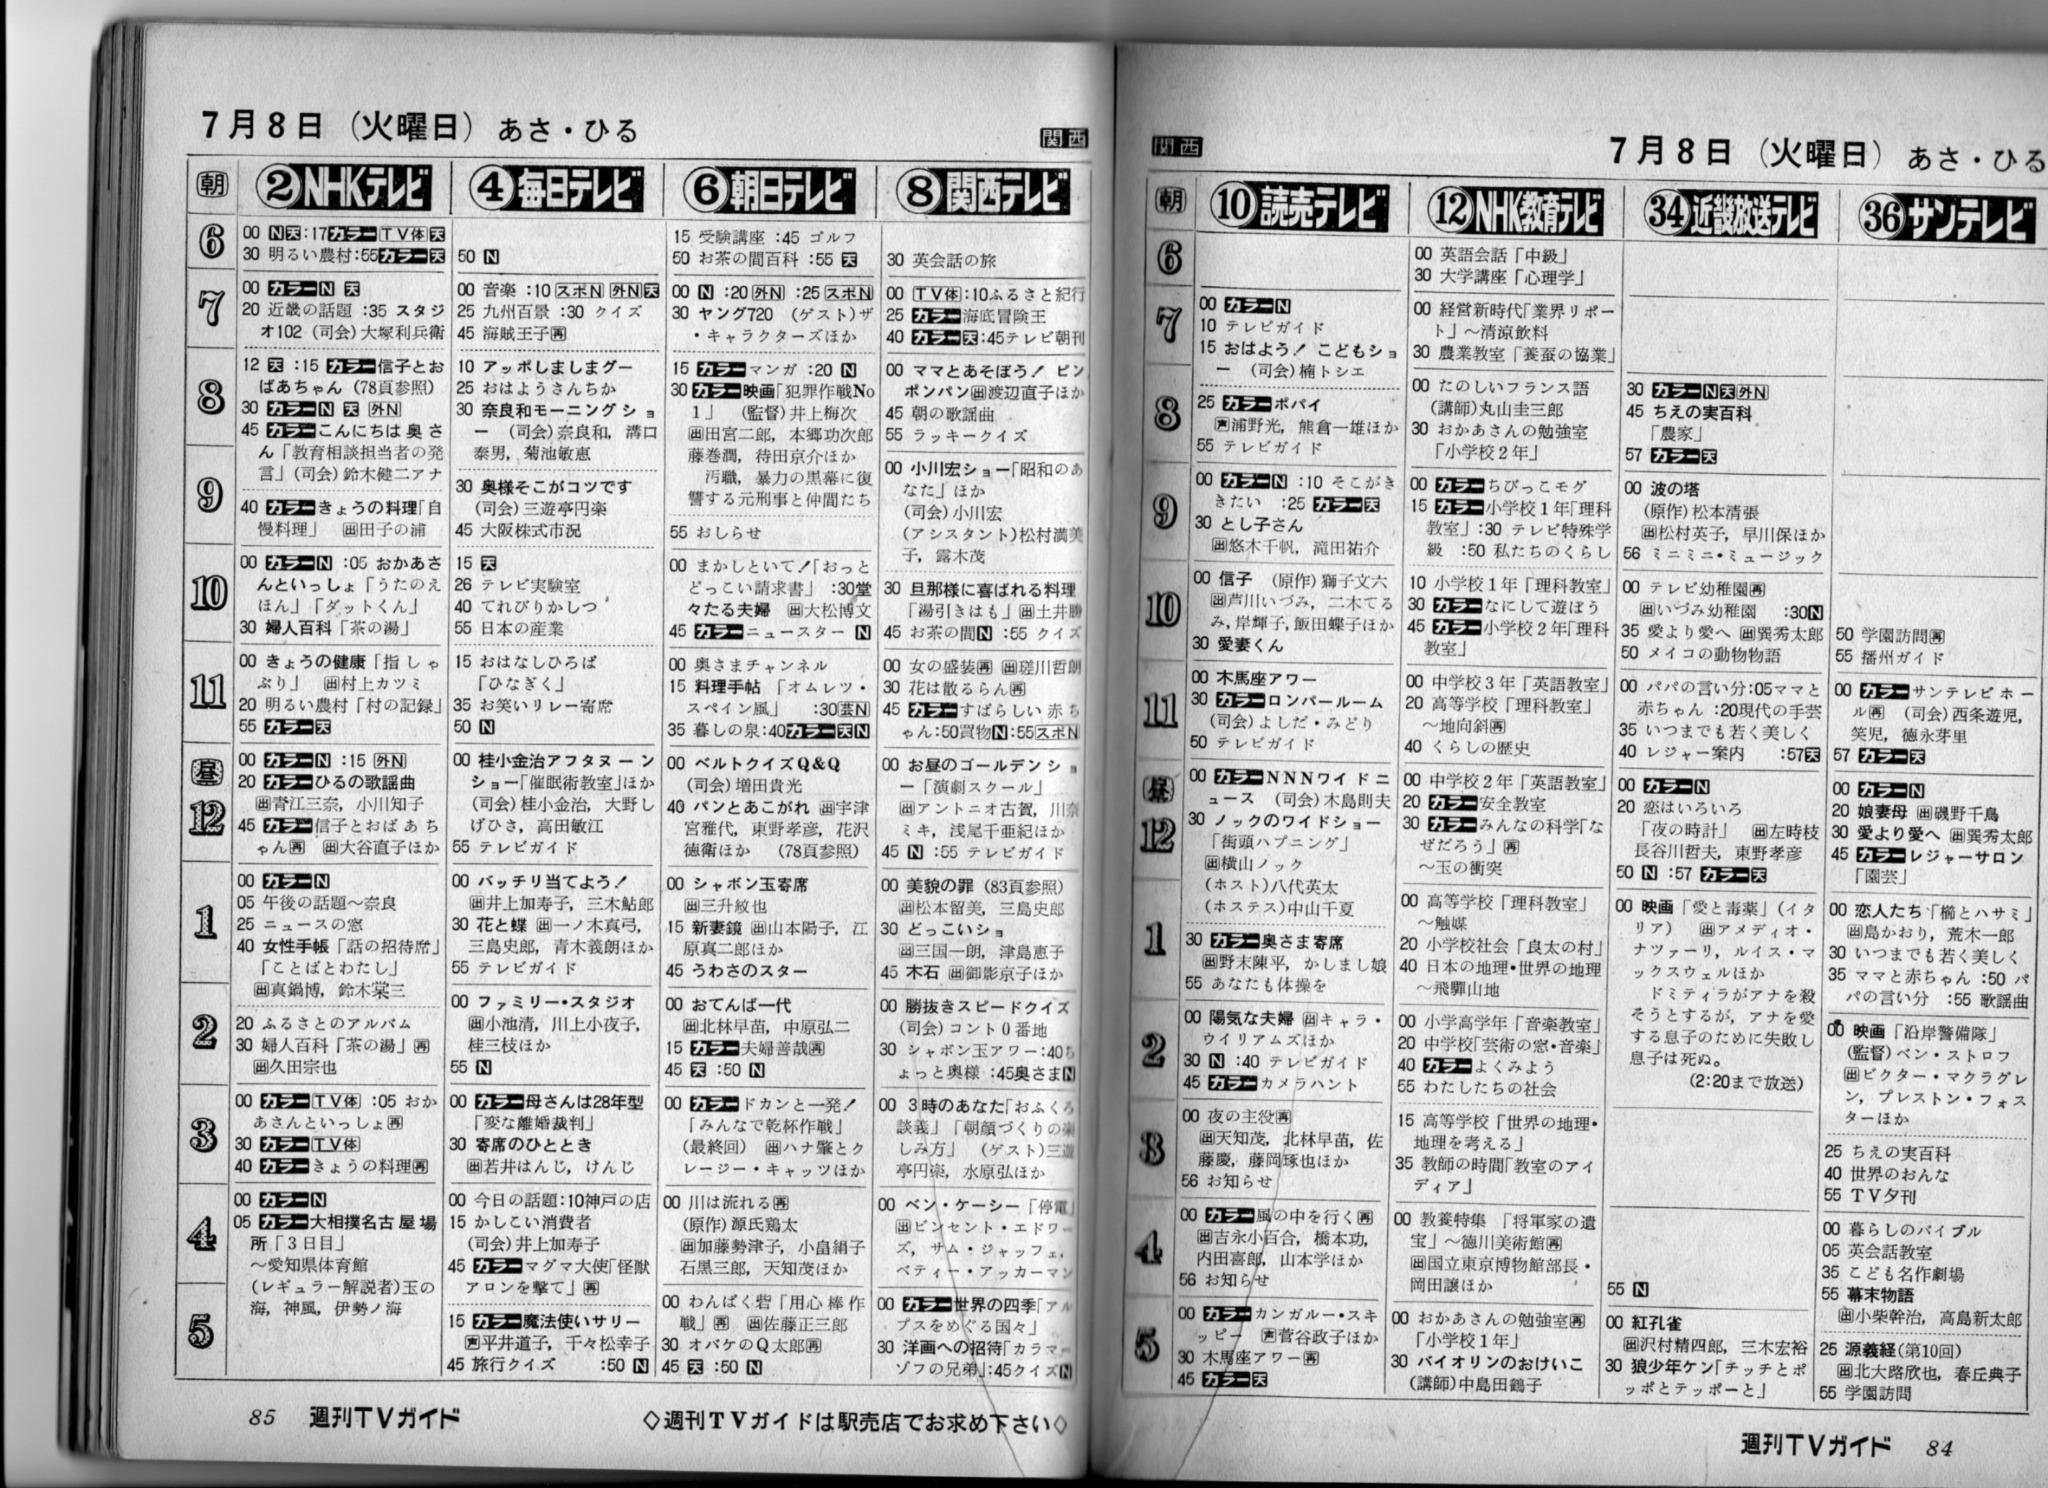 7月8日（火曜日）あさ・ひる
関西
朝
②NHKテレビ
6
00 N天:17カラーTV体天
30 明るい農村:55カラー天
7
00 カラーN 天
20 近畿の話題 :35 スタジ
オ102（司会）大塚利兵衛
8
12 天 :15 カラー信子とお
ばあちゃん（78頁参照）
30 カラーN 天 外N
45 カラーこんにちは奥さ
ん「教育相談担当者の発
言」（司会）鈴木健二アナ
9
40 カラーきょうの料理「自
慢料理」 出田子の浦
10
00 カラーN :05 おかあさ
んといっしょ「うたのえ
ほん」「ダットくん」
30 婦人百科「茶の湯」
11
00 きょうの健康「指しゃ
ぶり」 出村上カツミ
20 明るい農村「村の記録」
55 カラー天
昼
12
00 カラーN :15 外N
20 カラーひるの歌謡曲
出青江三奈，小川知子
45 カラー信子とおばあち
ゃん再 出大谷直子ほか
1
00 カラーN
05 午後の話題〜奈良
25 ニュースの窓
40 女性手帳「話の招待席」
「ことばとわたし」
出真鍋博，鈴木棠三
2
20 ふるさとのアルバム
30 婦人百科「茶の湯」再
出久田宗也
3
00 カラーTV体 :05 おか
あさんといっしょ再
30 カラーTV体
40 カラーきょうの料理再
4
00 カラーN
05 カラー大相撲名古屋場
所「3日目」
〜愛知県体育館
（レギュラー解説者）玉の
海，神風，伊勢ノ海
5
④毎日テレビ
50 N
00 音楽 :10 スポN 外N天
25 九州百景 :30 クイズ
45 海賊王子再
10 アッポしましまグー
25 おはようさんちか
30 奈良和モーニングショ
ー （司会）奈良和，溝口
泰男，菊池敏恵
30 奥様そこがコツです
（司会）三遊亭円楽
45 大阪株式市況
15 天
26 テレビ実験室
40 てれびりかしつ
55 日本の産業
15 おはなしひろば
「ひなぎく」
35 お笑いリレー寄席
50 N
00 桂小金治アフタヌーン
ショー「催眠術教室」ほか
（司会）桂小金治，大野し
げひさ，高田敏江
55 テレビガイド
00 バッチリ当てよう！
出井上加寿子，三木鮎郎
30 花と蝶 出一ノ木真弓，
三島史郎，青木義朗ほか
55 テレビガイド
00 ファミリー・スタジオ
出小池清，川上小夜子，
桂三枝ほか
55 N
00 カラー母さんは28年型
「変な離婚裁判」
30 寄席のひととき
出若井はんじ，けんじ
00 今日の話題:10神戸の店
15 かしこい消費者
（司会）井上加寿子
45 カラーマグマ大使「怪獣
アロンを撃て」再
15 カラー魔法使いサリー
声平井道子，千々松幸子
45 旅行クイズ :50 N
⑥朝日テレビ
15 受験講座 :45 ゴルフ
50 お茶の間百科 :55 天
00 N :20外N :25 スポN
30 ヤング720 （ゲスト）ザ
・キャラクターズほか
15 カラーマンガ :20 N
30 カラー映画「犯罪作戦No
1」 （監督）井上梅次
出田宮二郎，本郷功次郎
藤巻潤，待田京介ほか
汚職，暴力の黒幕に復
讐する元刑事と仲間たち
55 おしらせ
00 まかしといて！「おっと
どっこい請求書」:30堂
々たる夫婦 出大松博文
45 カラーニュースター N
00 奥さまチャンネル
15 料理手帖 「オムレツ・
スペイン風」 :30芸N
35 暮しの泉:40カラー天N
00 ベルトクイズQ&Q
（司会）増田貴光
40 パンとあこがれ 出宇津
宮雅代，東野孝彦，花沢
徳衛ほか （78頁参照）
00 シャボン玉寄席
出三升紋也
15 新妻鏡 出山本陽子，江
原真二郎ほか
45 うわさのスター
00 おてんば一代
出北林早苗，中原弘二
15 カラー夫婦善哉再
45 天 :50 N
00 カラードカンと一発！
「みんなで乾杯作戦」
（最終回） 出ハナ肇とク
レージー・キャッツほか
00 川は流れる再
（原作）源氏鶏太
出加藤勢津子，小畠絹子
石黒三郎，天知茂ほか
00 わんぱく砦「用心棒作
戦」再 出佐藤正三郎
30 オバケのQ太郎再
45 天 :50 N
⑧関西テレビ
30 英会話の旅
00 TV体:10ふるさと紀行
25 カラー海底冒険王
40 カラー天:45テレビ朝刊
00 ママとあそぼう！ピン
ポンパン出渡辺直子ほか
45 朝の歌謡曲
55 ラッキークイズ
00 小川宏ショー「昭和のあ
なた」ほか
（司会）小川宏
（アシスタント）松村満美
子，露木茂
30 旦那様に喜ばれる料理
「湯引きはも」出土井勝
45 お茶の間N :55 クイズ
00 女の盛装再 出瑳川哲朗
30 花は散るらん再
45 カラーすばらしい赤ち
ゃん:50買物N:55スポN
00 お昼のゴールデンショ
ー「演劇スクール」
出アントニオ古賀，川奈
ミキ，浅尾千亜紀ほか
45 N :55 テレビガイド
00 美貌の罪（83頁参照）
出松本留美，三島史郎
30 どっこいショ
出三国一朗，津島恵子
45 木石 出御影京子ほか
00 勝抜きスピードクイズ
（司会）コント0番地
30 シャボン玉アワー:40ち
ょっと奥様 :45奥さまN
00 3時のあなた「おふくろ
談義」「朝顔づくりの楽
しみ方」 （ゲスト）三遊
亭円楽，水原弘ほか
00 ベン・ケーシー「停電」
出ビンセント・エドワー
ズ，サム・ジャッフェ，
ベティー・アッカーマン
00 カラー世界の四季「アル
プスをめぐる国々」
30 洋画への招待「カラマー
ゾフの兄弟」:45クイズN
85 週刊TVガイド
◇週刊TVガイドは駅売店でお求め下さい◇
関西
7月8日（火曜日）あさ・ひる
朝
⑩読売テレビ
6
7
00 カラーN
10 テレビガイド
15 おはよう！こどもショ
ー （司会）楠トシエ
8
25 カラーポパイ
声浦野光，熊倉一雄ほか
55 テレビガイド
9
00 カラーN :10 そこがき
きたい :25 カラー天
30 とし子さん
出悠木千帆，滝田祐介
10
00 信子 （原作）獅子文六
出芦川いづみ，二木てる
み，岸輝子，飯田蝶子ほか
30 愛妻くん
11
00 木馬座アワー
30 カラーロンパールーム
（司会）よしだ・みどり
50 テレビガイド
昼
12
00 カラーNNNワイドニ
ュース （司会）木島則夫
30 ノックのワイドショー
「街頭ハプニング」
出横山ノック
（ホスト）八代英太
（ホステス）中山千夏
1
30 カラー奥さま寄席
出野末陳平，かしまし娘
55 あなたも体操を
2
00 陽気な夫婦 出キャラ・
ウイリアムズほか
30 N :40 テレビガイド
45 カラーカメラハント
3
00 夜の主役再
出天知茂，北林早苗，佐
藤慶，藤岡琢也ほか
56 お知らせ
4
00 カラー風の中を行く再
出吉永小百合，橋本功，
内田喜郎，山本学ほか
56 お知らせ
5
00 カラーカンガルー・スキ
ッピー 声菅谷政子ほか
30 木馬座アワー再
45 カラー天
⑫NHK教育テレビ
00 英語会話「中級」
30 大学講座「心理学」
00 経営新時代「業界リポー
ト」〜清涼飲料
30 農業教室「養蚕の協業」
00 たのしいフランス語
（講師）丸山圭三郎
30 おかあさんの勉強室
「小学校2年」
00 カラーちびっこモグ
15 カラー小学校1年「理科
教室」:30 テレビ特殊学
級 :50 私たちのくらし
10 小学校1年「理科教室」
30 カラーなにして遊ぼう
45 カラー小学校2年「理科
教室」
00 中学校3年「英語教室」
20 高等学校「理科教室」
〜地向斜再
40 くらしの歴史
00 中学校2年「英語教室」
20 カラー安全教室
30 カラーみんなの科学「な
ぜだろう」再
〜玉の衝突
00 高等学校「理科教室」
〜触媒
20 小学校社会「良太の村」
40 日本の地理・世界の地理
〜飛騨山地
00 小学高学年「音楽教室」
20 中学校「芸術の窓・音楽」
40 カラーよくみよう
55 わたしたちの社会
15 高等学校「世界の地理・
地理を考える」
35 教師の時間「教室のアイ
ディア」
00 教養特集 「将軍家の遺
宝」〜徳川美術館再
出国立東京博物館部長・
岡田譲ほか
00 おかあさんの勉強室再
「小学校1年」
30 バイオリンのおけいこ
（講師）中島田鶴子
㉞近畿放送テレビ
30 カラーN天外N
45 ちえの実百科
「農家」
57 カラー天
00 波の塔
（原作）松本清張
出松村英子，早川保ほか
56 ミニミニ・ミュージック
00 テレビ幼稚園再
出いづみ幼稚園 :30N
35 愛より愛へ 出巽秀太郎
50 メイコの動物物語
00 パパの言い分:05ママと
赤ちゃん :20現代の手芸
35 いつまでも若く美しく
40 レジャー案内 :57天
00 カラーN
20 恋はいろいろ
「夜の時計」 出左時枝
長谷川哲夫，東野孝彦
50 N :57 カラー天
00 映画「愛と毒薬」（イタ
リア） 出アメディオ・
ナツァーリ，ルイス・マ
ックスウェルほか
ドミティラがアナを殺
そうとするが，アナを愛
する息子のために失敗し
息子は死ぬ。
（2:20まで放送）
55 N
00 紅孔雀
出沢村精四郎，三木宏裕
30 狼少年ケン「チッチとポ
ッポとテッポーと」
㊱サンテレビ
50 学園訪問再
55 播州ガイド
00 カラーサンテレビホー
ル再 （司会）西条遊児，
笑児，徳永芽里
57 カラー天
00 カラーN
20 娘妻母 出磯野千鳥
30 愛より愛へ 出巽秀太郎
45 カラーレジャーサロン
「園芸」
00 恋人たち「櫛とハサミ」
出島かおり，荒木一郎
30 いつまでも若く美しく
35 ママと赤ちゃん :50 パ
パの言い分 :55 歌謡曲
00 映画「沿岸警備隊」
（監督）ベン・ストロフ
出ビクター・マクラグレ
ン，プレストン・フォス
ターほか
25 ちえの実百科
40 世界のおんな
55 TV夕刊
00 暮らしのバイブル
05 英会話教室
35 こども名作劇場
55 幕末物語
出小柴幹治，高島新太郎
25 源義経（第10回）
出北大路欣也，春丘典子
55 学園訪問
週刊TVガイド 84